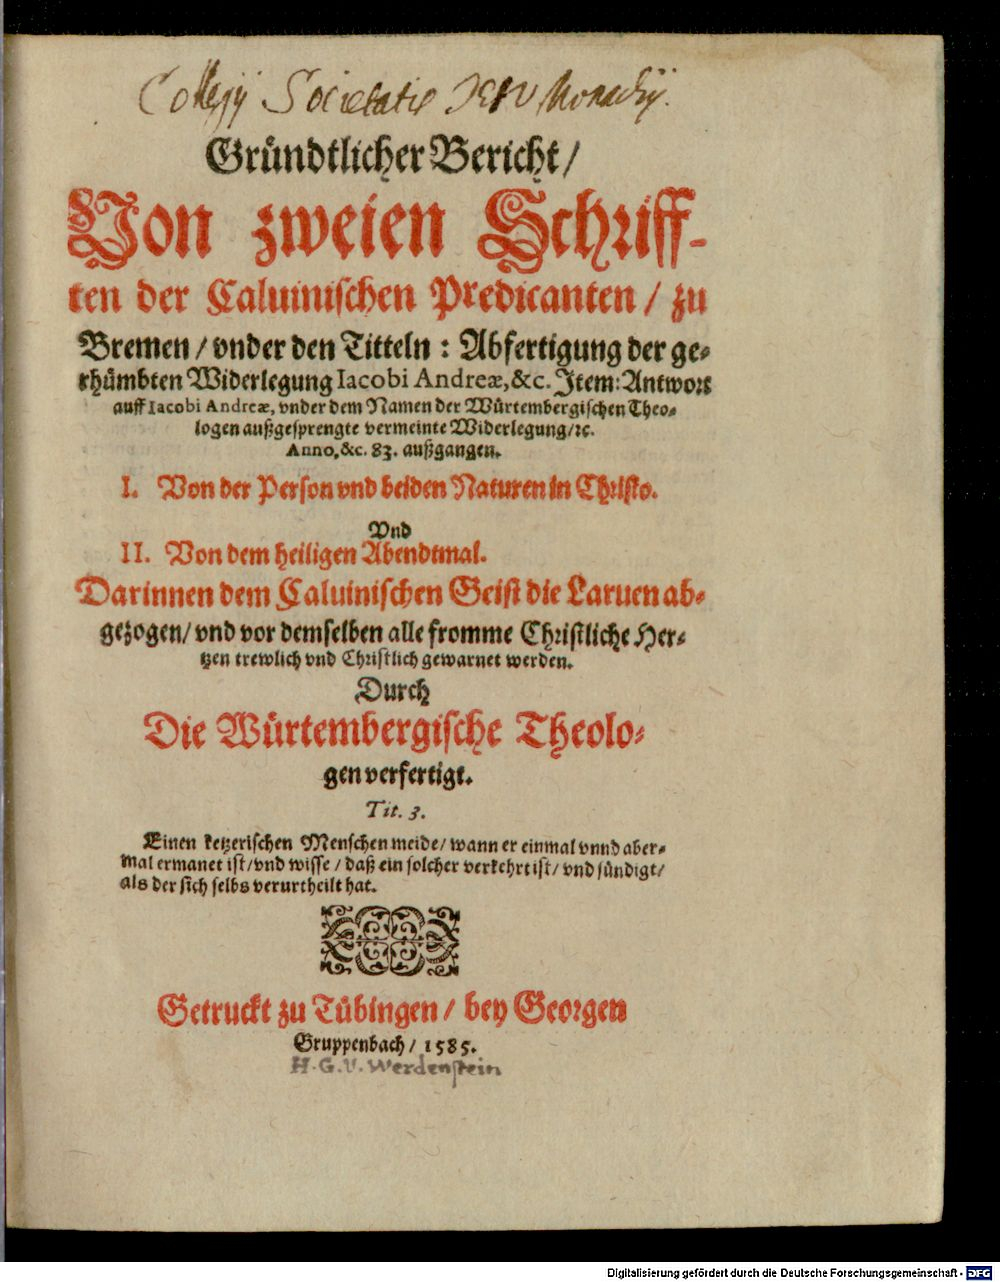 Collegij Societatis IESV Monachij.
Gründtlicher Bericht/
Von zweien Schriff-
ten der Caluinischen Predicanten / zu
Bremen / vnder den Titteln : Abfertigung der ge-
rhümbten Widerlegung Iacobi Andreæ, &c. Item: Antwort
auff Iacobi Andreæ, vnder dem Namen der Würtembergischen Theo-
logen außgesprengte vermeinte Widerlegung/ ꝛc.
Anno, &c. 83. außgangen.
I. Von der Person vnd beiden Naturen in Christo.
Vnd
II. Von dem heiligen Abendtmal.
Darinnen dem Caluinischen Geist die Laruen ab-
gezogen/ vnd vor demselben alle fromme Christliche Her-
tzen trewlich vnd Christlich gewarnet werden.
Durch
Die Würtembergische Theolo-
gen verfertigt.
Tit. 3.
Einen ketzerischen Menschen meide/ wann er einmal vnnd aber-
mal ermanet ist/ vnd wisse / daß ein solcher verkehrt ist/ vnd sündigt/
als der sich selbs verurtheilt hat.
Getruckt zu Tübingen / bey Georgen
Gruppenbach / 1585.
H. G. V. Werdenstein
Digitalisierung gefördert durch die Deutsche Forschungsgemeinschaft - DFG